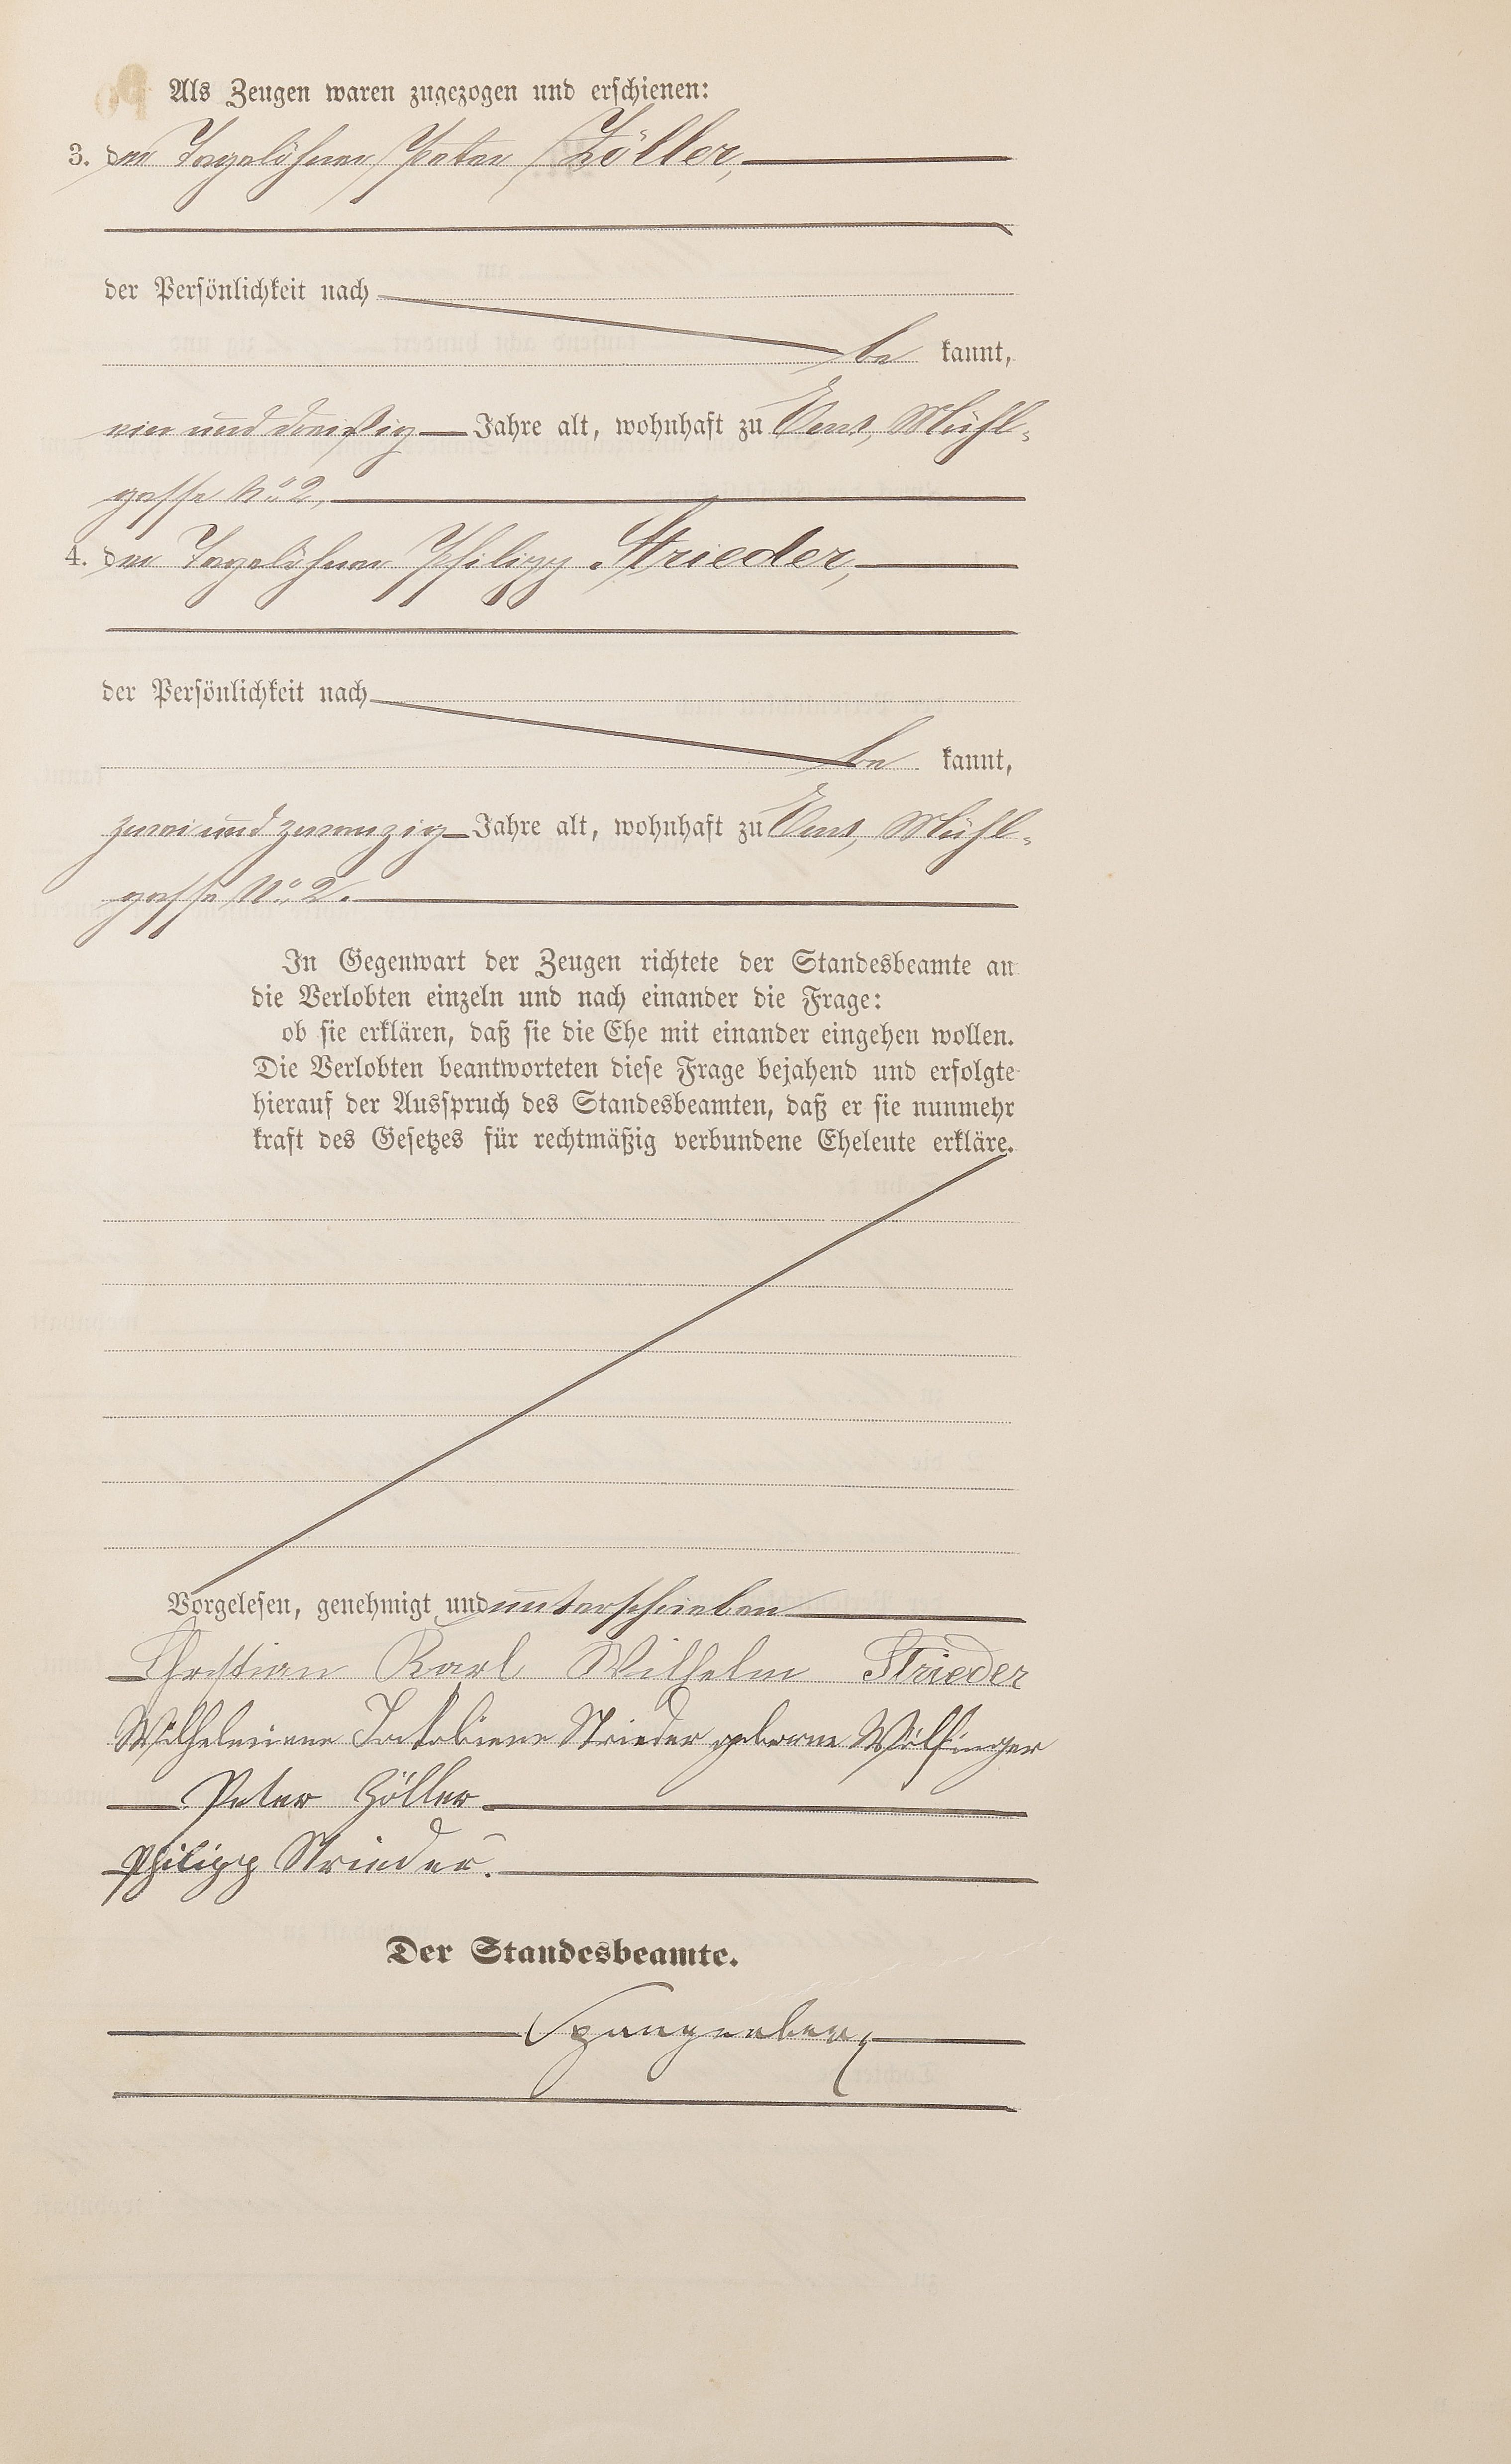 Als Zeugen waren zugezogen und erschienen:
3. der Tagelöhner Peter Zöller,
der Persönlichkeit nach
be kannt,
ein und dreißig Jahre alt, wohnhaft zu Ems, Mühl-
gasse No. 2,
4. der Tagelöhner Philipp Strieder,
der Persönlichkeit nach
be kannt,
zwei und zwanzig Jahre alt, wohnhaft zu Ems, Mühl-
gasse No. 2.
In Gegenwart der Zeugen richtete der Standesbeamte an
die Verlobten einzeln und nach einander die Frage:
ob sie erklären, daß sie die Ehe mit einander eingehen wollen.
Die Verlobten beantworteten diese Frage bejahend und erfolgte
hierauf der Ausspruch des Standesbeamten, daß er sie nunmehr
kraft des Gesetzes für rechtmäßig verbundene Eheleute erkläre.
Vorgelesen, genehmigt und unterschrieben
Christian Karl Wilhelm Strieder
Wilhelmine Jakobine Strieder geborne Wölfinger
Peter Zöller
Philipp Strieder.
Der Standesbeamte.
Spangenberg